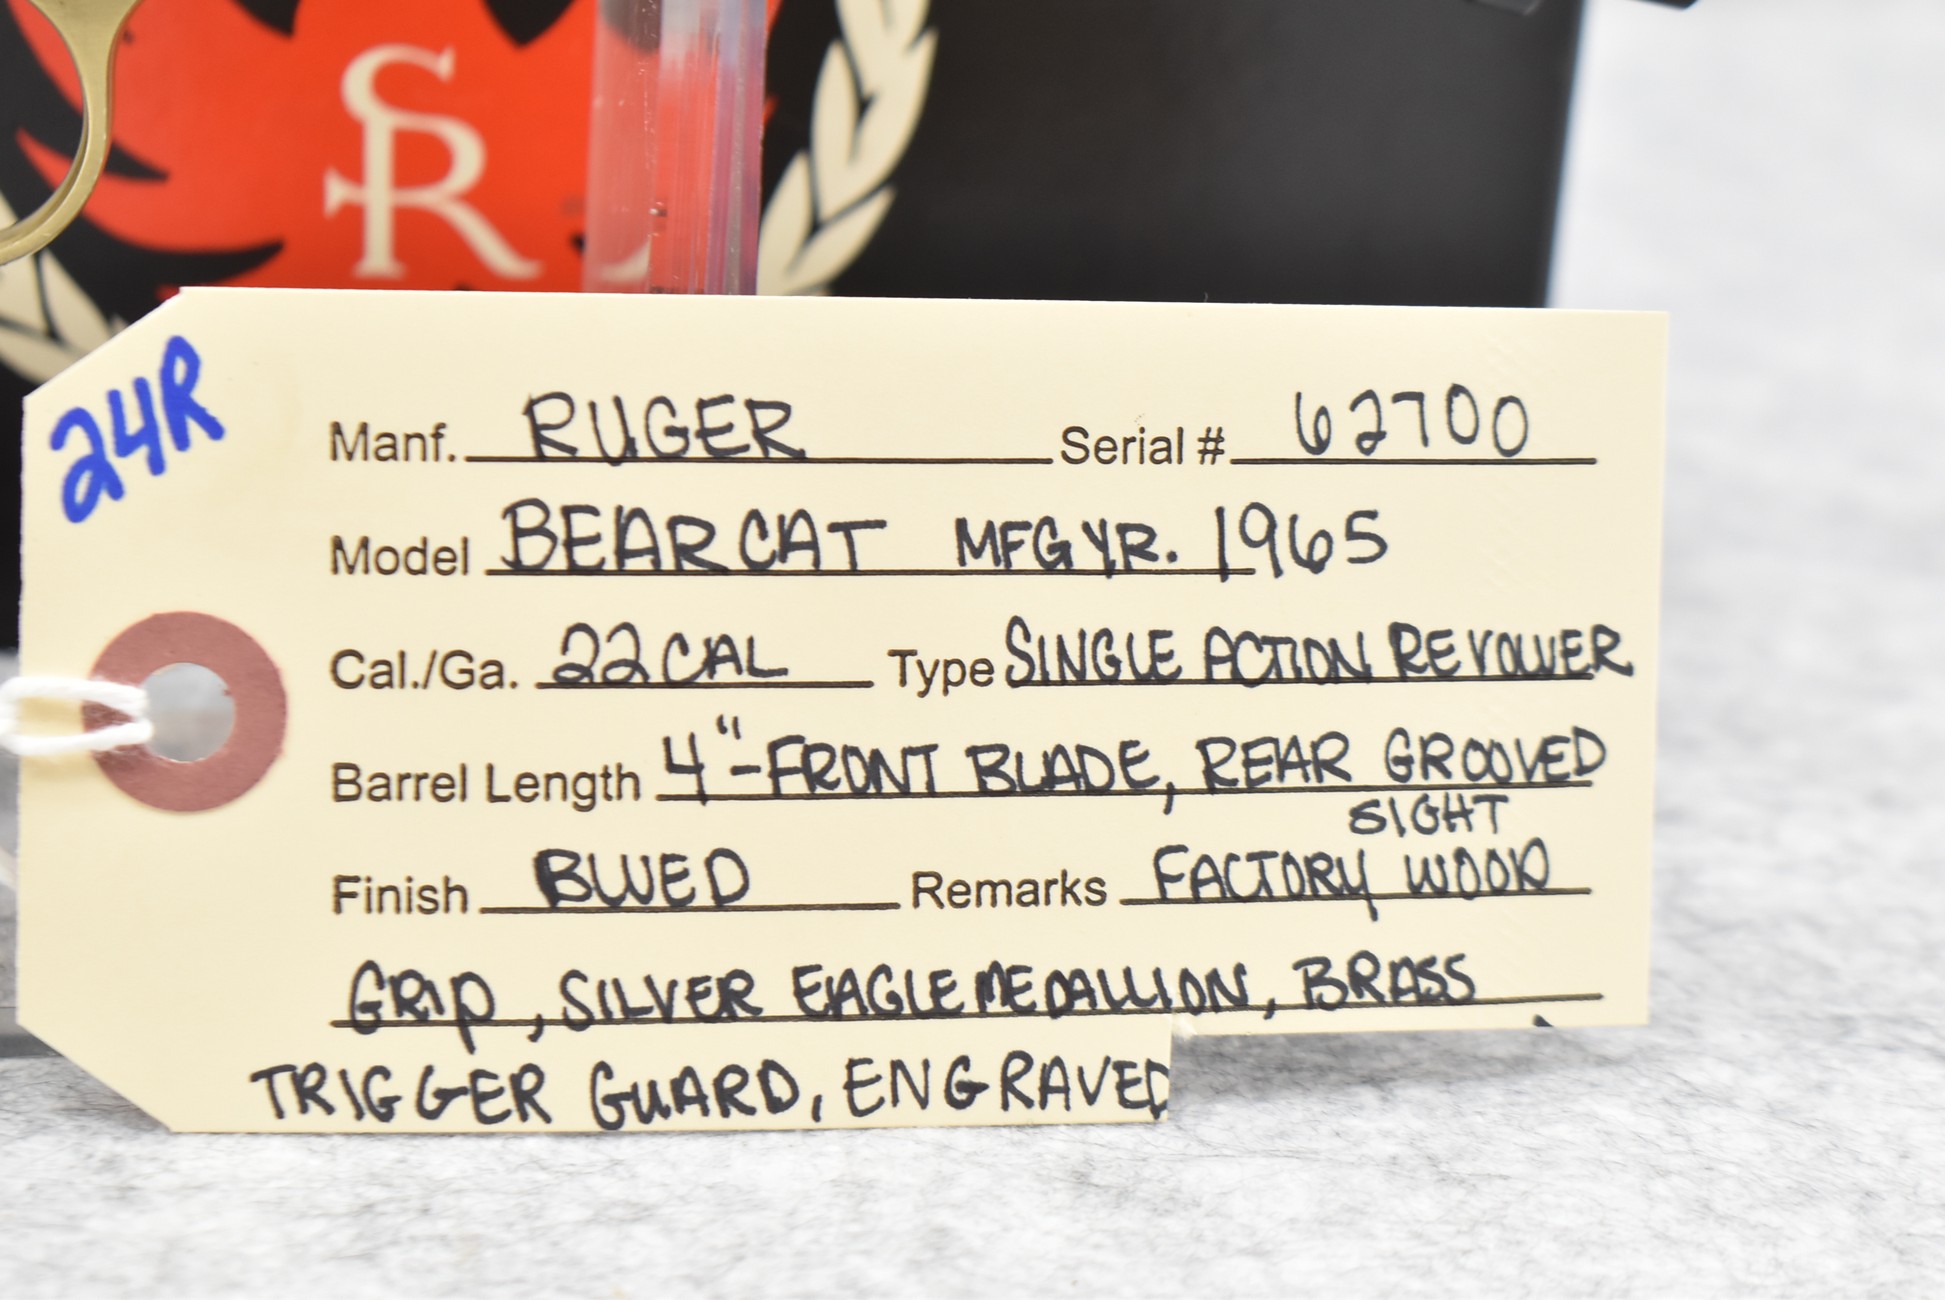 SR
24R
Manf. RUGER Serial # 62700
Model BEARCAT MFG YR. 1965
Cal./Ga. 22 CAL Type SINGLE ACTION REVOLVER
Barrel Length 4"-FRONT BLADE, REAR GROOVED
SIGHT
Finish BLUED Remarks FACTORY WOOD
GRIP, SILVER EAGLE MEDALLION, BRASS
TRIGGER GUARD, ENGRAVED